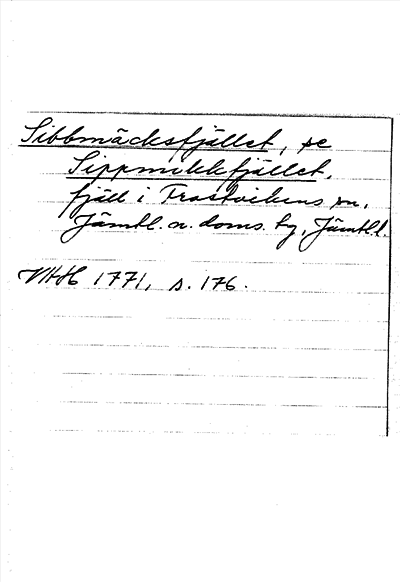 Sibbmäcksfjället, se
Sippmikkfjället,
fjäll i Frostvikens sn,
Jämtl. n. doms. tg, Jämtl. l.
1771, s. 176.